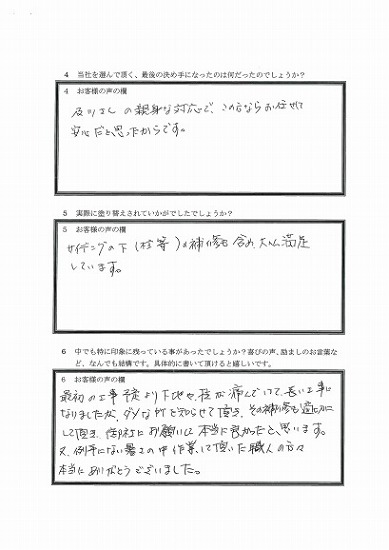 4 当社を選んで頂く、最後の決め手になったのは何だったのでしょうか？
4 お客様の声の欄
及川さんの親身な対応で、この方ならお任せして
安心だと思ったからです。
5 実際に塗り替えされていかがでしたでしょうか？
5 お客様の声の欄
サイディングの下(柱等)の補修も含め、大へん満足
しています。
6 中でも特に印象に残っている事があったでしょうか？喜びの声、励ましのお言葉な
ど、なんでも結構です。具体的に書いて頂けると嬉しいです。
6 お客様の声の欄
最初の工事予定より下地や、柱が痛んでいて、長い工事に
なりましたが、ダメな所を知らせて頂き、その補修も適切に
して頂き、御社にお願いして本当に良かったと、思います。
又、例年にない暑さの中作業して頂いた職人の方々
本当にありがとうございました。